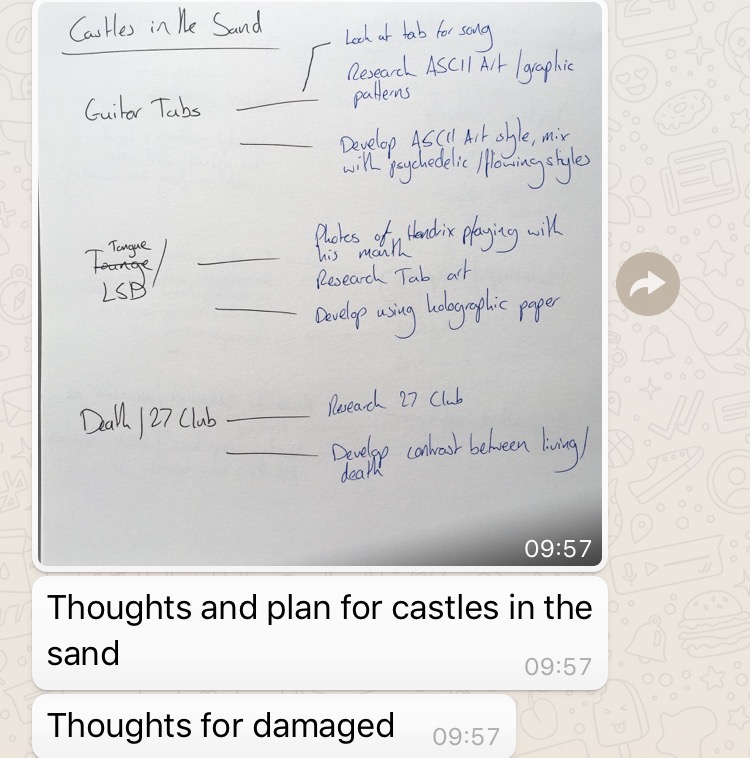 Castles in the Sand
Look at tab for song
Guitar Tabs
Research ASCII Art / graphic
patterns
Develop ASCII Art style, mix
with psychedelic / flowing styles
Tongue
Tounge /
LSD
Photos of Hendrix playing with
his mouth
Research Tab art
Develop using holographic paper
Death / 27 Club
Research 27 Club
Develop contrast between living/
death
09:57
Thoughts and plan for castles in the
sand
09:57
Thoughts for damaged 09:57